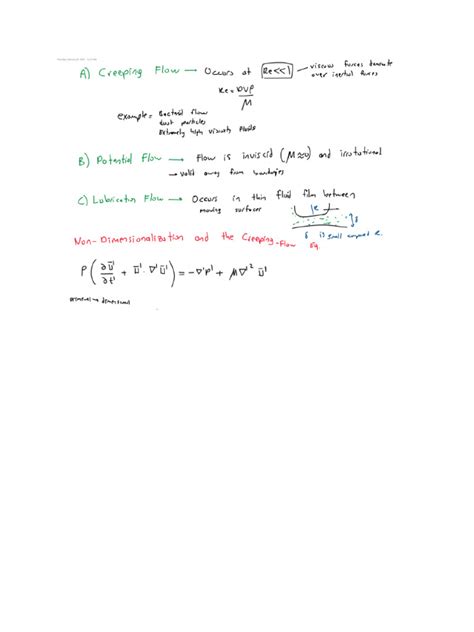 A) Creeping Flow → Occurs at Re<<1 — viscous forces dominate over inertial forces
Re = DVρ / μ
example = Bacteria flow
dust particles
Extremely high viscosity fluids
B) Potential Flow → Flow is inviscid (μ≈0) and irrotational
→ valid away from boundaries
C) Lubrication Flow → Occurs in thin fluid film between
moving surfaces
δ is small compared
Non-Dimensionalization and the Creeping-Flow Eq.
ρ ( ∂ū' / ∂t' + ū' · ∇' ū' ) = -∇'P' + μ∇'² ū'
→ dimensional